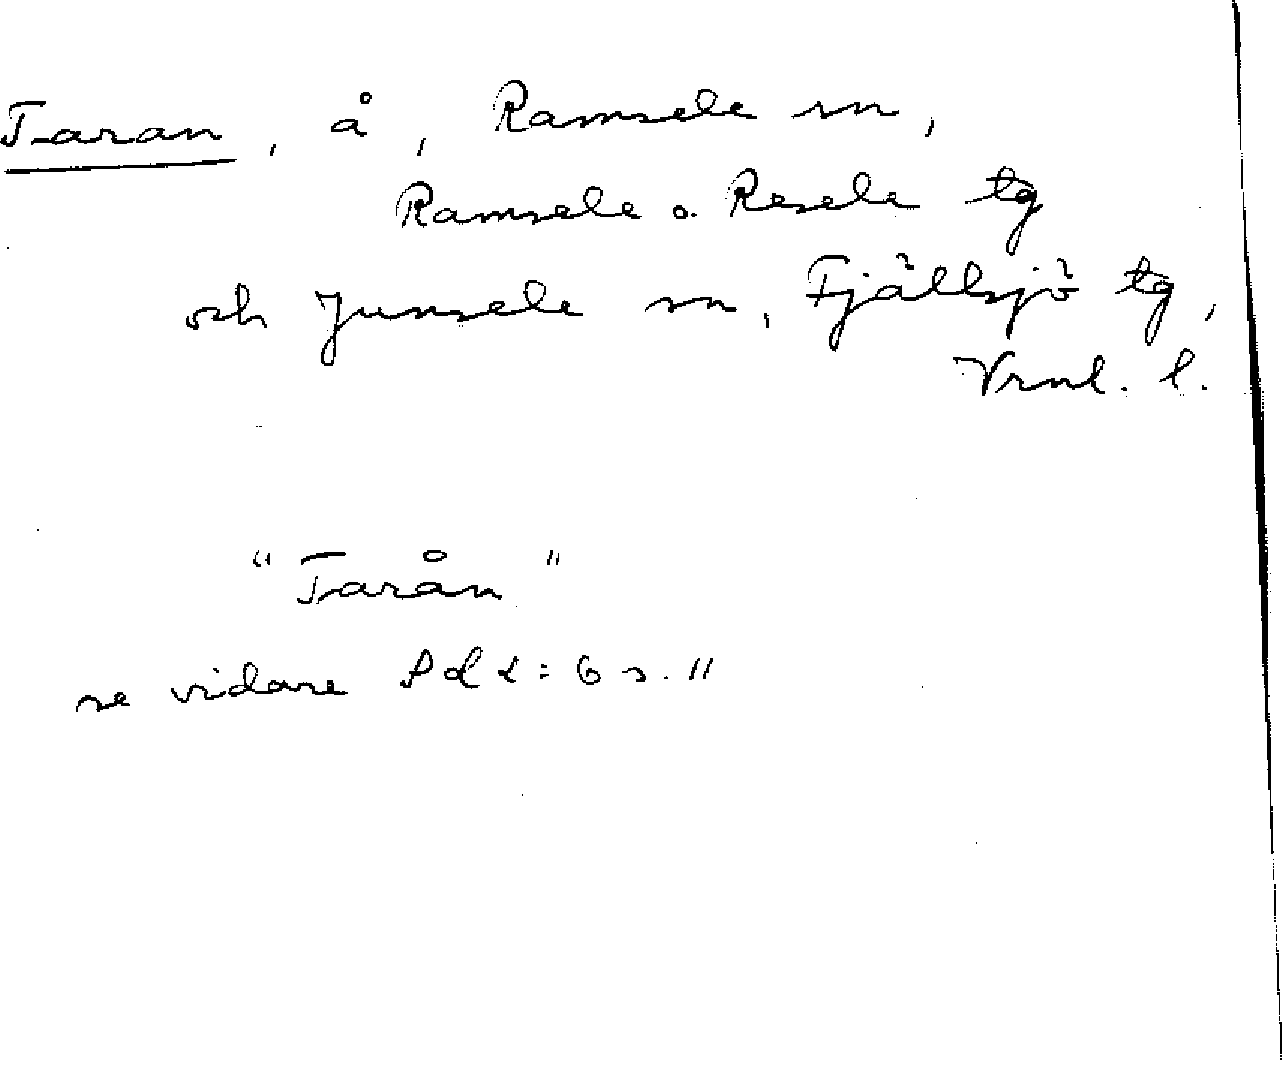 Taran, å, Ramsele sn,
Ramsele o. Resele tg
och Junsele sn, Fjällsjö tg,
Vrnl. l.
"Tarån"
se vidare s. 11